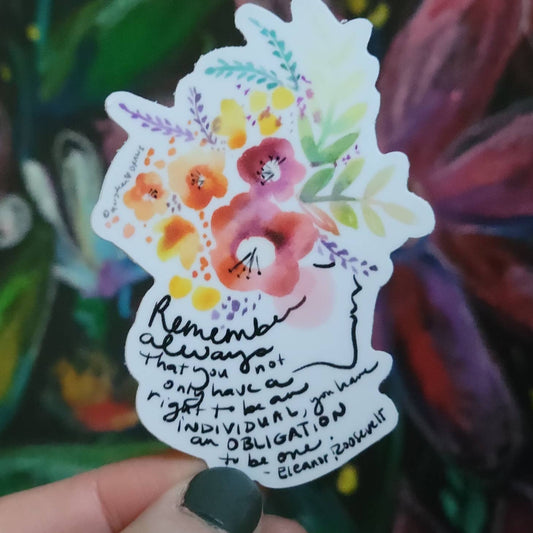 Remember
always
that you not
only have a
right to be an
INDIVIDUAL, you have
an OBLIGATION
to be one.
- Eleanor Roosevelt